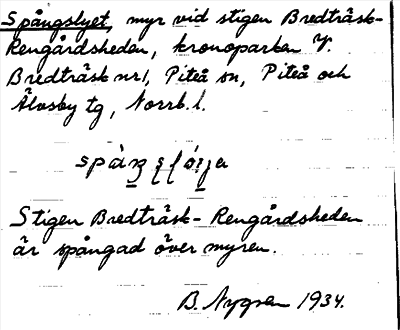 Spångslyet, myr vid stigen Bredträsk-
Rengårdsheden, kronoparken V.
Bredträsk nr1, Piteå sn, Piteå och
Älvsby tg, Norrb.l.
Stigen Bredträsk - Rengårdsheden
är spångad över myren.
B. Nygren 1934.